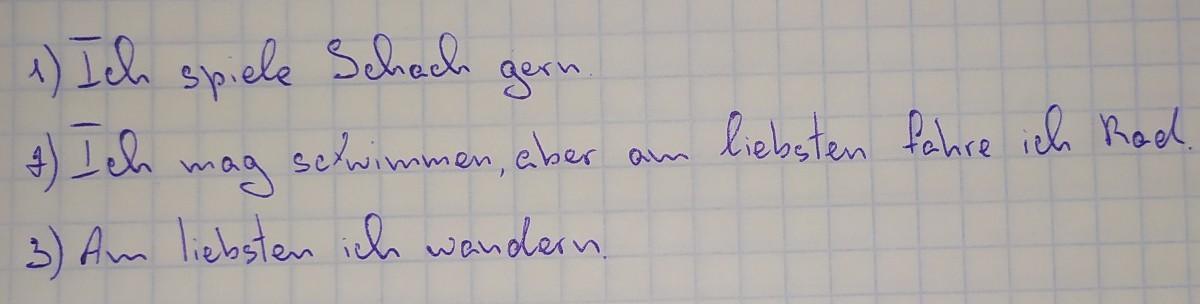 1) Ich spiele Schach gern.
2) Ich mag schwimmen, aber am liebsten fahre ich Rad.
3) Am liebsten ich wandern.